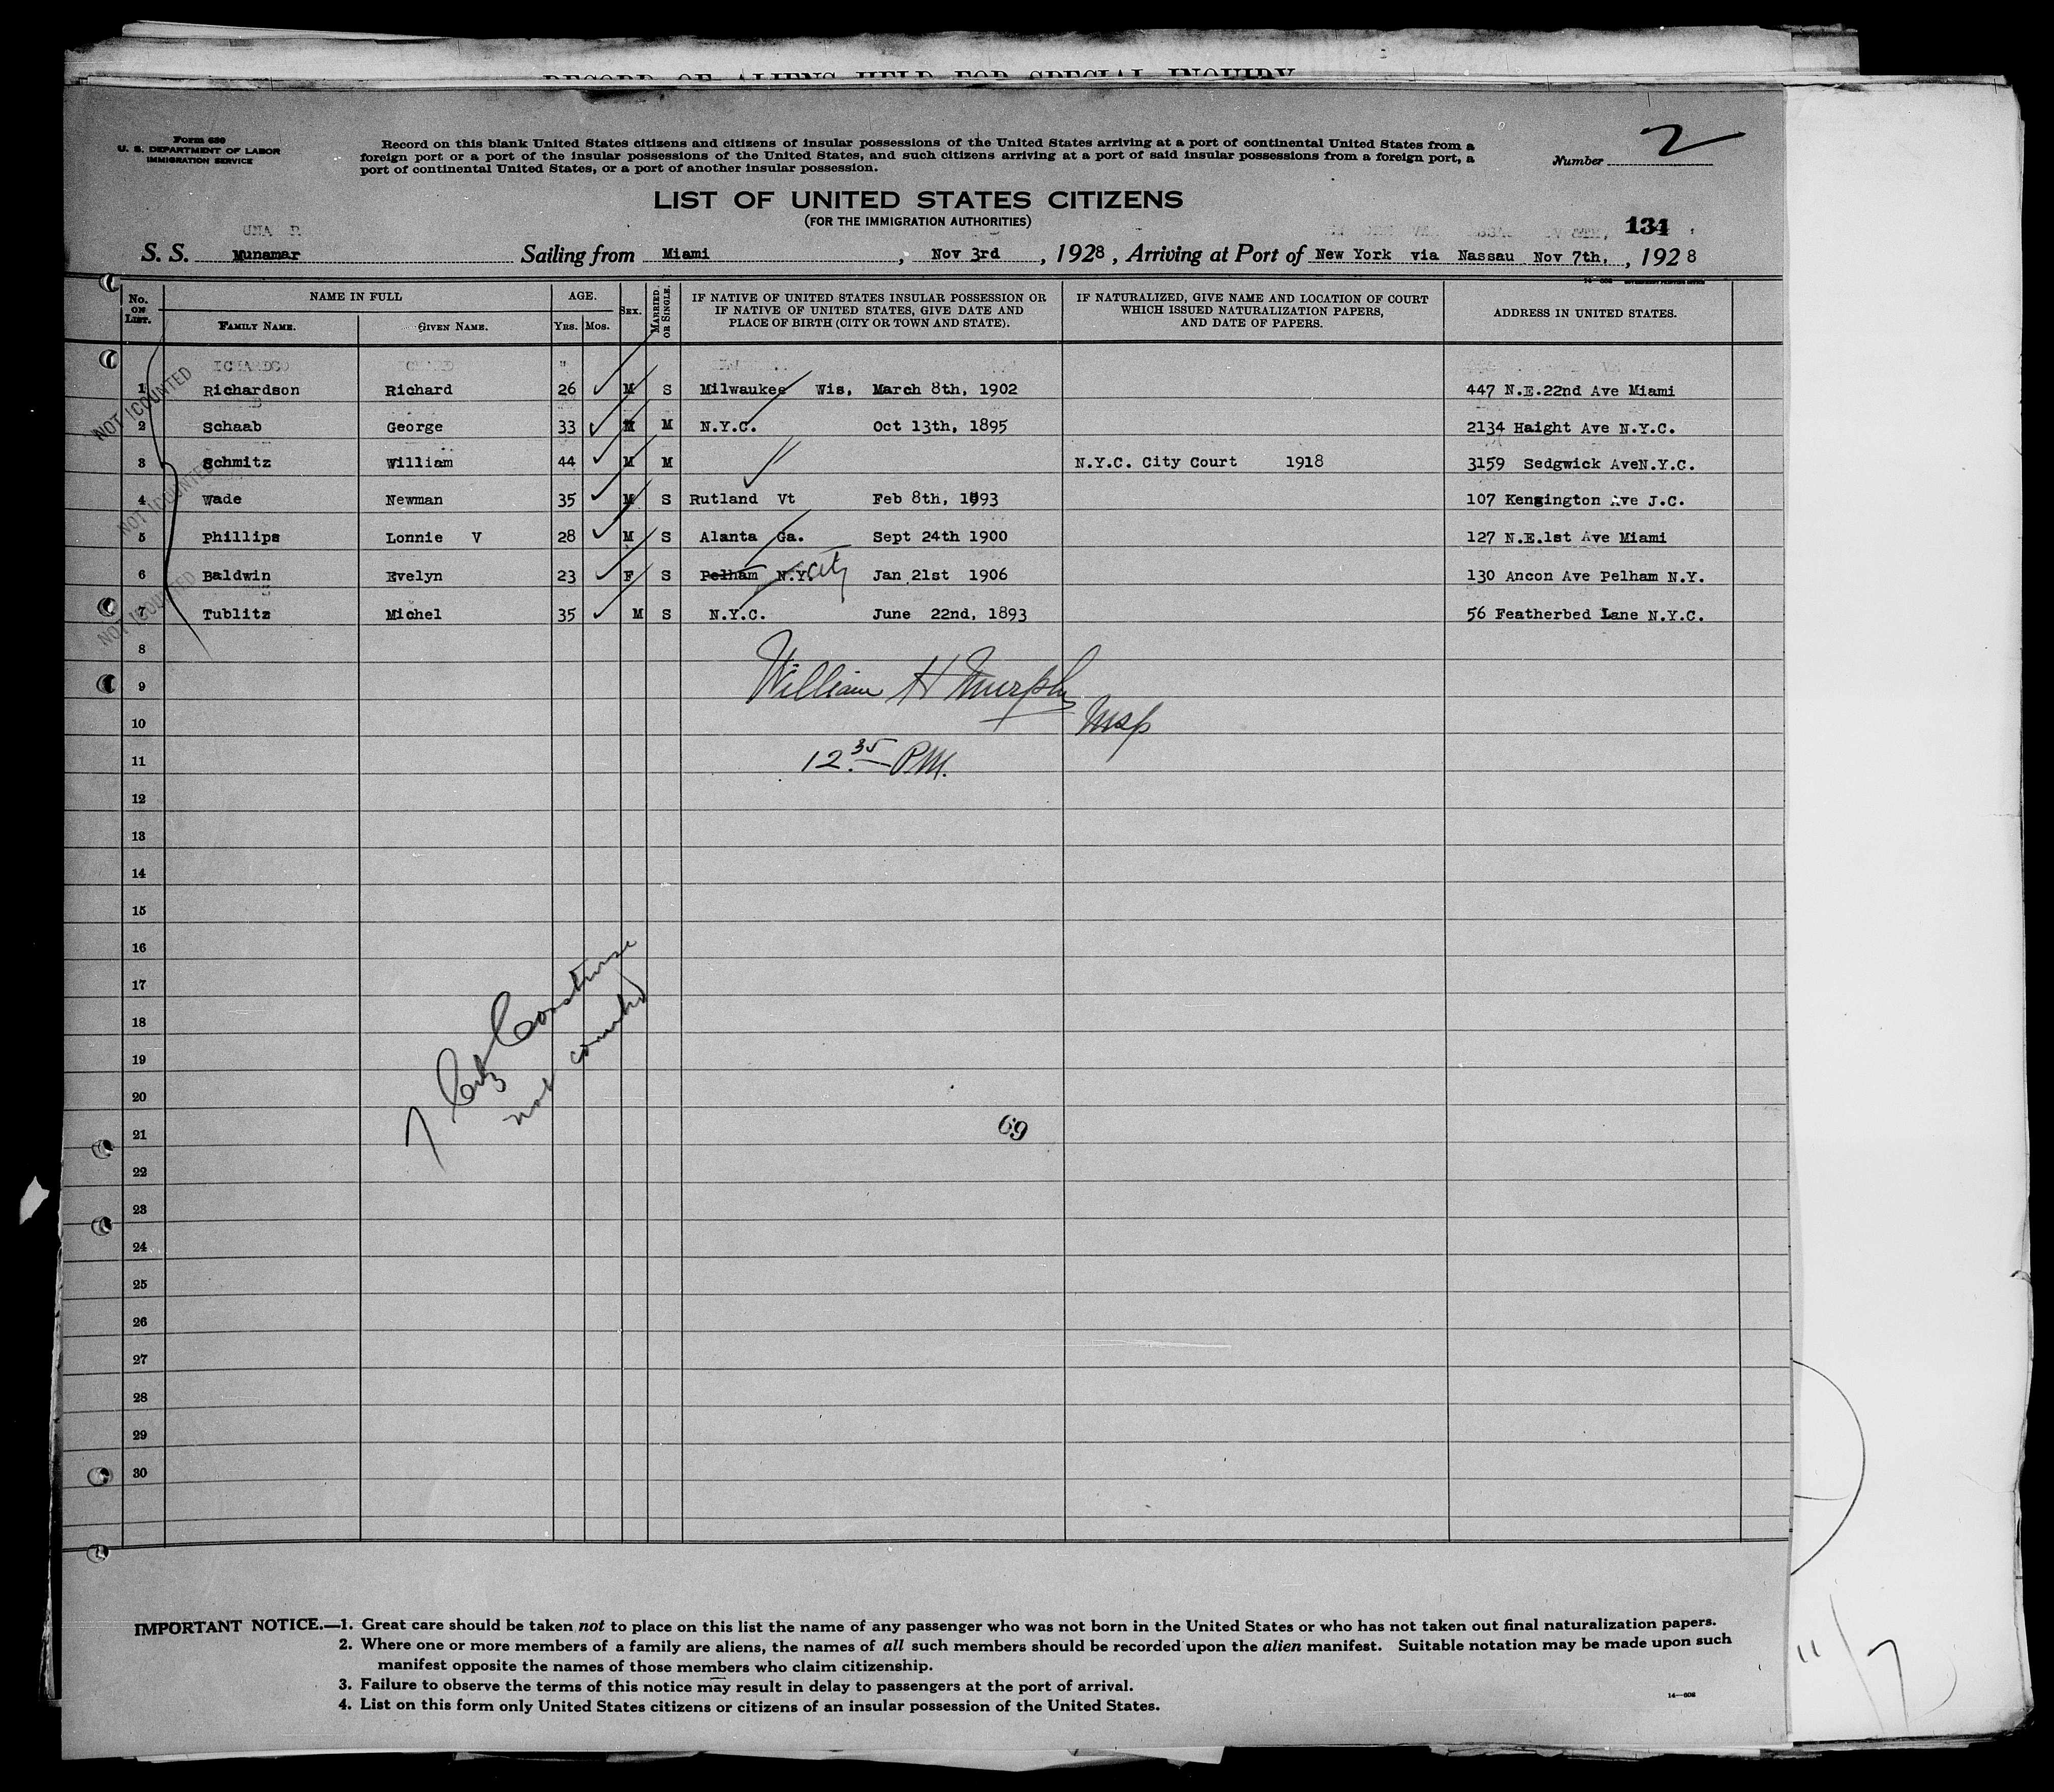 RECORD OF ALIENS HELD FOR SPECIAL INQUIRY
Form 630
U. S. DEPARTMENT OF LABOR
IMMIGRATION SERVICE
Record on this blank United States citizens and citizens of insular possessions of the United States arriving at a port of continental United States from a
foreign port or a port of the insular possessions of the United States, and such citizens arriving at a port of said insular possessions from a foreign port, a
port of continental United States, or a port of another insular possession.
Number 2
LIST OF UNITED STATES CITIZENS
(FOR THE IMMIGRATION AUTHORITIES)
134
S. S. Munamar Sailing from Miami, Nov 3rd, 1928, Arriving at Port of New York via Nassau Nov 7th,, 1928
No. ON LIST. NAME IN FULL FAMILY NAME. GIVEN NAME. AGE. YRS. MOS. SEX. MARRIED OR SINGLE. IF NATIVE OF UNITED STATES INSULAR POSSESSION OR IF NATIVE OF UNITED STATES, GIVE DATE AND PLACE OF BIRTH (CITY OR TOWN AND STATE). IF NATURALIZED, GIVE NAME AND LOCATION OF COURT WHICH ISSUED NATURALIZATION PAPERS, AND DATE OF PAPERS. ADDRESS IN UNITED STATES.
1 Richardson Richard 26 M S Milwaukee Wis, March 8th, 1902 447 N.E.22nd Ave Miami
NOT COUNTED
2 Schaab George 33 M M N.Y.C. Oct 13th, 1895 2134 Haight Ave N.Y.C.
3 Schmitz William 44 M M N.Y.C. City Court 1918 3159 Sedgwick AveN.Y.C.
NOT COUNTED
4 Wade Newman 35 M S Rutland Vt Feb 8th, 1893 107 Kengington Ave J.C.
5 Phillips Lonnie V 28 M S Alanta Ga. Sept 24th 1900 127 N.E.1st Ave Miami
6 Baldwin Evelyn 23 F S Pelham N.Y. City Jan 21st 1906 130 Ancon Ave Pelham N.Y.
NOT COUNTED
7 Tublitz Michel 35 M S N.Y.C. June 22nd, 1893 56 Featherbed Lane N.Y.C.
8
9 William H Murphy
10 Insp
11 12.35 P.M.
12
13
14
15
16
17
18
19
20
7 Citz Coastwise
not counted
21 69
22
23
24
25
26
27
28
29
30
IMPORTANT NOTICE.—1. Great care should be taken not to place on this list the name of any passenger who was not born in the United States or who has not taken out final naturalization papers.
2. Where one or more members of a family are aliens, the names of all such members should be recorded upon the alien manifest. Suitable notation may be made upon such
manifest opposite the names of those members who claim citizenship.
3. Failure to observe the terms of this notice may result in delay to passengers at the port of arrival.
4. List on this form only United States citizens or citizens of an insular possession of the United States.
14—606
11/7